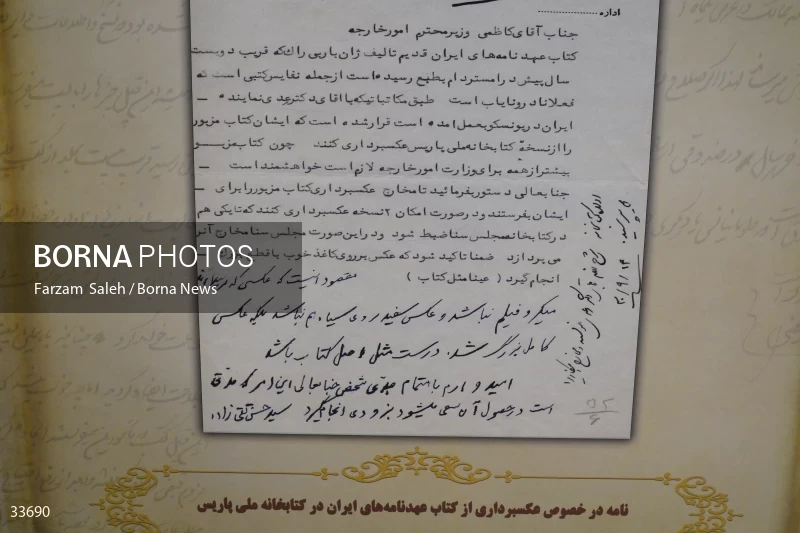 اداره
جناب آقای کاظمی وزیر محترم امور خارجه
کتاب عهد نامه های ایران قدیم تالیف ژان باربی راک که قریب دویست
سال پیش در آمستردام بطبع رسیده است از جمله نفایس کتبی است که
فعلا نادر و نایاب است طبق مکاتباتیکه با آقای دکتر عدی نماینده
ایران در یونسکو بعمل آمده است قرار شده است که ایشان کتاب مزبور
را از نسخه کتابخانه ملی پاریس عکسبرداری کنند چون کتاب مزبور
بیشتر از همه برای وزارت امور خارجه لازم است خواهشمند است
جنابعالی دستور فرمائید تا مخارج عکسبرداری کتاب مزبور را برای
ایشان بفرستند و در صورت امکان ۲ نسخه عکسبرداری کنند که تا یکی هم
در کتابخانه مجلس سنا ضبط شود و در این صورت مجلس سنا مخارج آنرا
می پردازد ضمنا تاکید شود که عکس بر روی کاغذ خوب با قطع
انجام گیرد ( عینا مثل کتاب ) مقصود اینست که عکسی که
میکروفیلم نباشد و عکس سفید روی سیاه هم نباشد بلکه عکس
کامل بزرگ شده درست مثل اصل کتاب باشد
امیدوارم با اهتمام شخص جنابعالی این امر که
است در حصول آن سعی میشود بزودی انجام گیرد سید حسن تقی زاده
BORNA PHOTOS
Farzam Saleh / Borna News
33690
نامه در خصوص عکسبرداری از کتاب عهدنامه‌های ایران در کتابخانه ملی پاریس